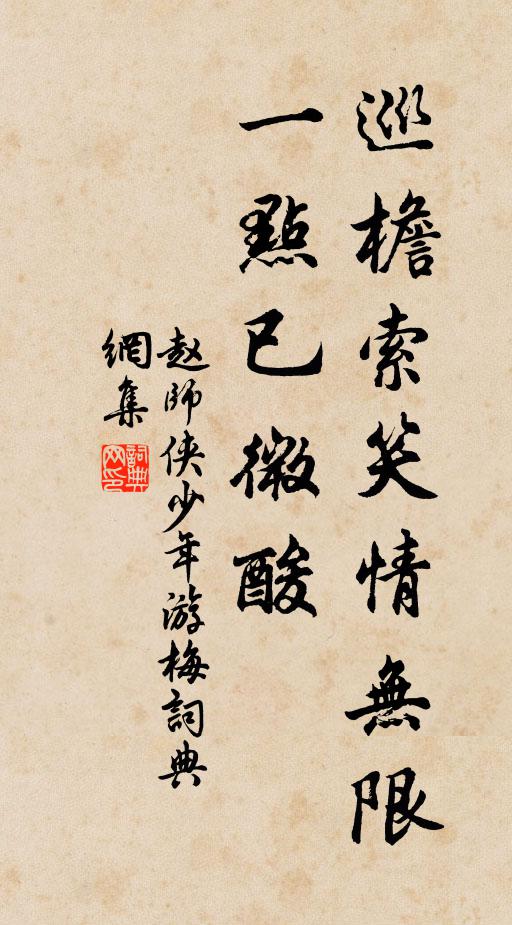 巡檐索笑情無限
一點已微酸
赵師俠少年游梅詞典
網集
詞典网印